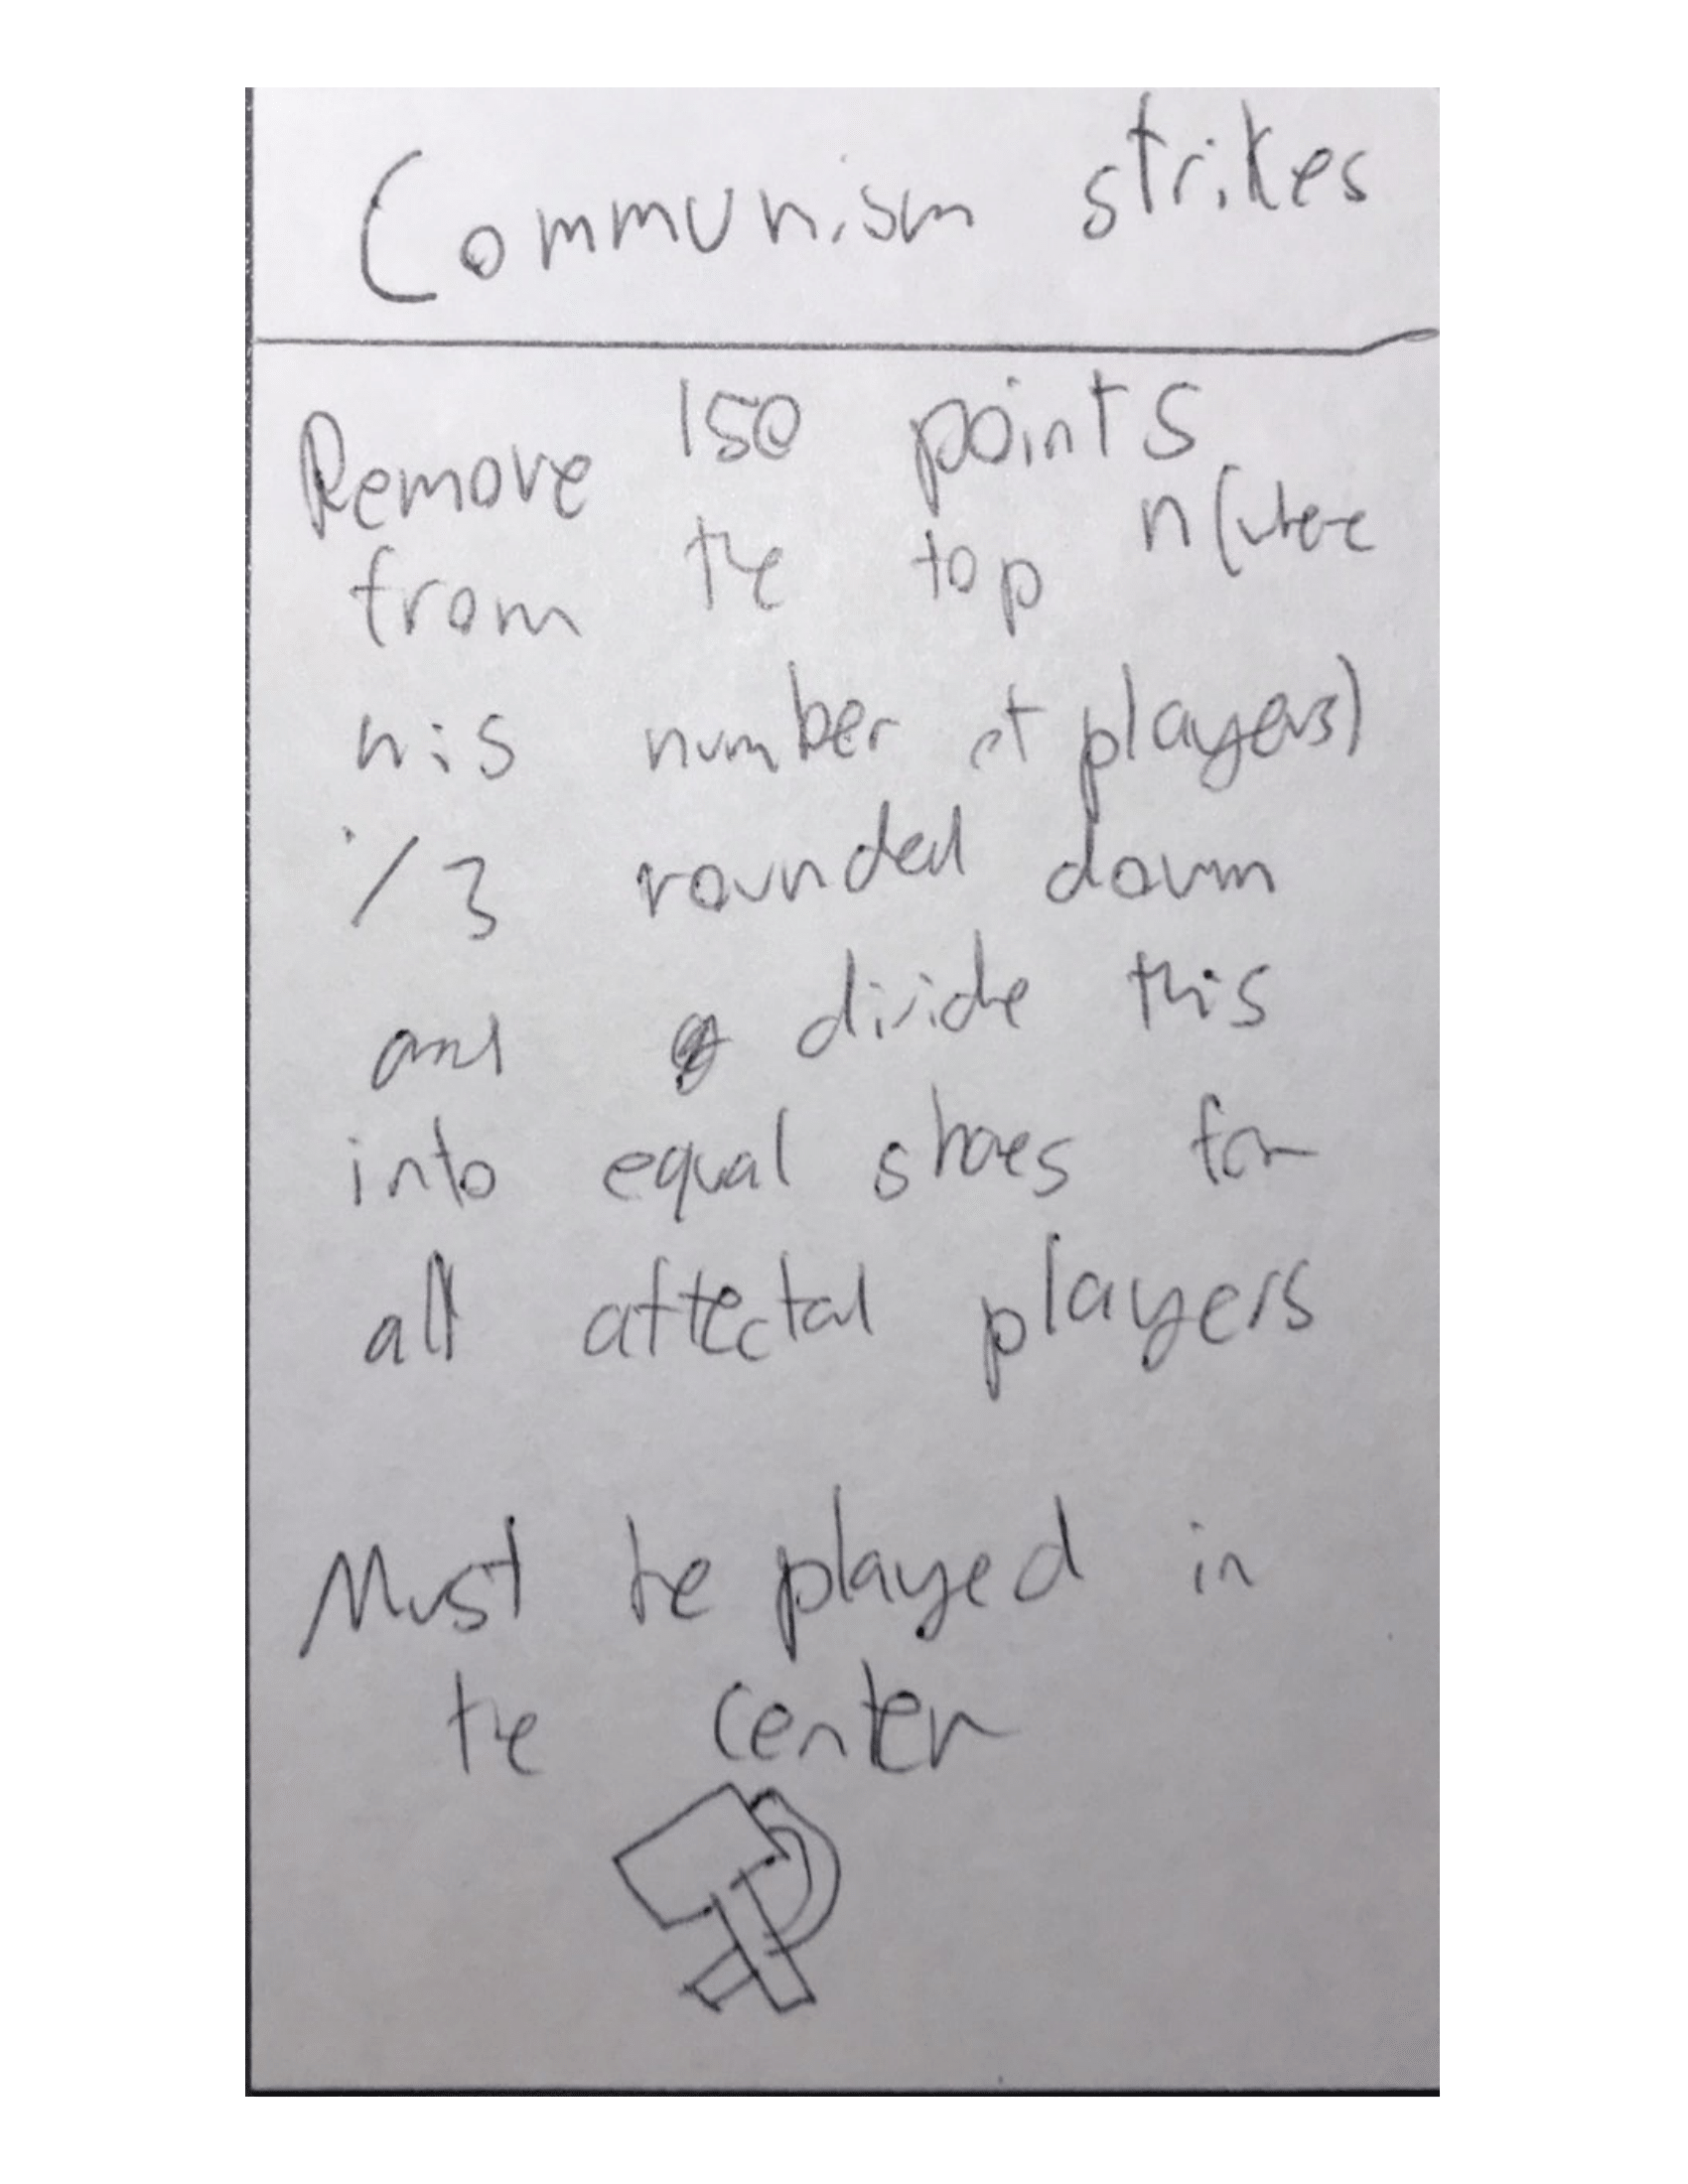 Communism strikes
Remove 150 points
from the top n(where
n is number of players)
/3 rounded down
and divide this
into equal shares for
all affected players
Must be played in
the center